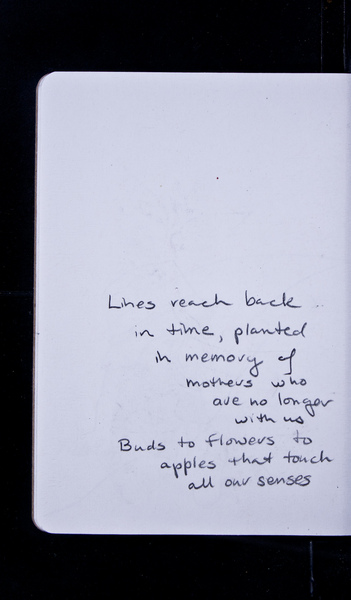 Lines reach back
in time, planted
in memory of
mothers who
are no longer
with us
Buds to flowers to
apples that touch
all our senses